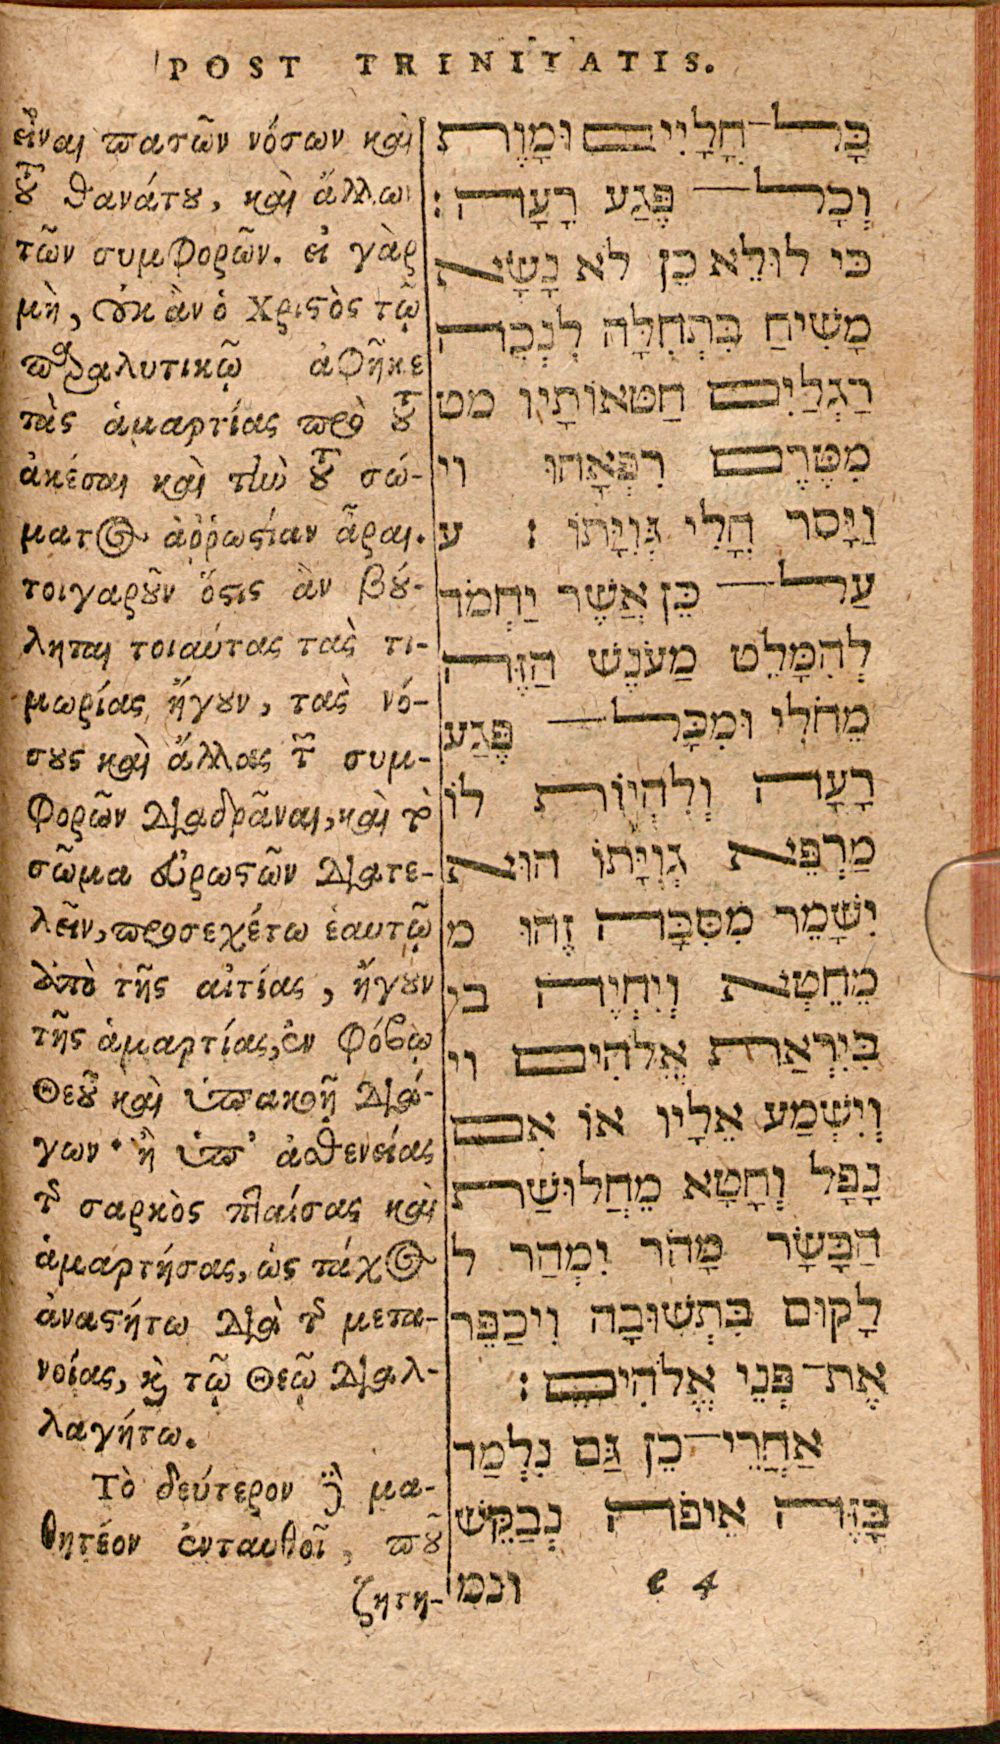 POST TRINITATIS.
εἶναι πασῶν νόσων καὶ
τοῦ θανάτου, καὶ ἄλλων
τῶν συμφορῶν. εἰ γὰρ
μὴ, οὐκ ἂν ὁ Χριστὸς τῷ
παραλυτικῷ ἀφῆκε
τὰς ἁμαρτίας πρὸ τοῦ
ἀκέσαι καὶ τὴν τοῦ σώ-
ματος ἀῤῥωστίαν ἆραι.
τοιγαροῦν ὅστις ἂν βού-
ληται τοιαύτας τὰς τι-
μωρίας ἤγουν, τὰς νό-
σους καὶ ἄλλας τῶν συμ-
φορῶν διαδρᾶναι, καὶ τὸ
σῶμα εὐρωστῶν διατε-
λεῖν, προσεχέτω ἑαυτῷ
ἀπὸ τῆς αἰτίας, ἤγουν
τῆς ἁμαρτίας, ἐν φόβῳ
Θεοῦ καὶ ὑπακοῇ διά-
γων· ἢ ὑπ' ἀσθενείας
τῆς σαρκὸς πταίσας καὶ
ἁμαρτήσας, ὡς τάχος
ἀναστήτω διὰ τῆς μετα-
νοίας, καὶ τῷ Θεῷ διαλ-
λαγήτω.
Τὸ δεύτερον μα-
θητέον ἐνταυθοῖ, ποῦ
ζητη-
כָּל־חֳלָיִים וּמָוֶת
וְכָל־ פֶּגַע רָעָה:
כִּי לוּלֵא כֵן לֹא נָשָׂא
מָשִׁיחַ בִּתְחִלָּה לְנְכֵה
רַגְלַיִם חַטּאוֹתָיו מט
מִטֶּרֶם רִפְּאָהוּ וי
וַיָּסַר חֳלִי גְּוִיָּתוֹ: ע
עַל־ כֵּן אֲשֶׁר יַחְמֹד
לְהִמָּלֵט מֵעֹנֶשׁ הַזֶּה
מֵחֹלִי וּמִכָּל־ פֶּגַע
רָעָה וְלִהְיוֹת לוֹ
מַרְפֵּא גְּוִיָּתוֹ הוּא
יִשָּׁמֵר מִסִּבָּה זֶהוּ מ
מֵחֵטְא וְיִחְיֶה בי
בְּיִרְאַת אֱלֹהִים וי
וְיִשְׁמַע אֵלָיו אוֹ אִם
נָפָל וְחָטָא מֵחֲלוּשַׁת
הַבָּשָׂר מָהֹר יִמְהַר ל
לָקוּם בִּתְשׁוּבָה וִיכַפֵּר
אֶת־פְּנֵי אֱלֹהִים:
אַחֲרֵי־כֵן גַּם נִלְמַד
בָּזֶה אֵיפֹה נְבַקֵּשׁ
ונמ
e 4